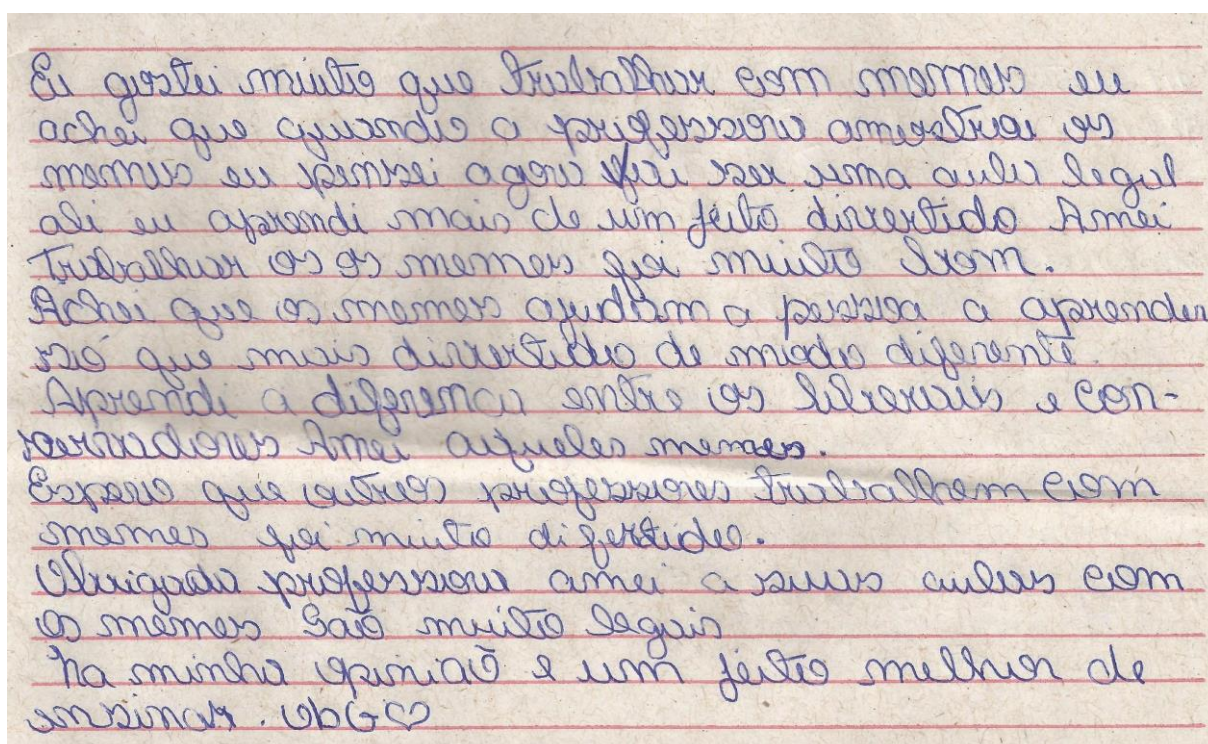 Eu gostei muito que trabalhar com memes eu
achei que quando a professora amostrou os
memes eu pensei agora vai ser uma aula legal
ali eu aprendi mais de um jeito divertido Amei
Trabalhar os os memes foi muito bom.
Achei que os memes ajudam a pessoa a aprender
só que mais divertido de modo diferente.
Aprendi a diferença entre os liberais e con-
servadores Amei aqueles memes.
Espero que outros professores trabalhem com
memes foi muito difertido.
Obrigada professora amei a suas aulas com
os memes São muito legais
Na minha opinião e um jeito melhor de
ensinar. ObG♡